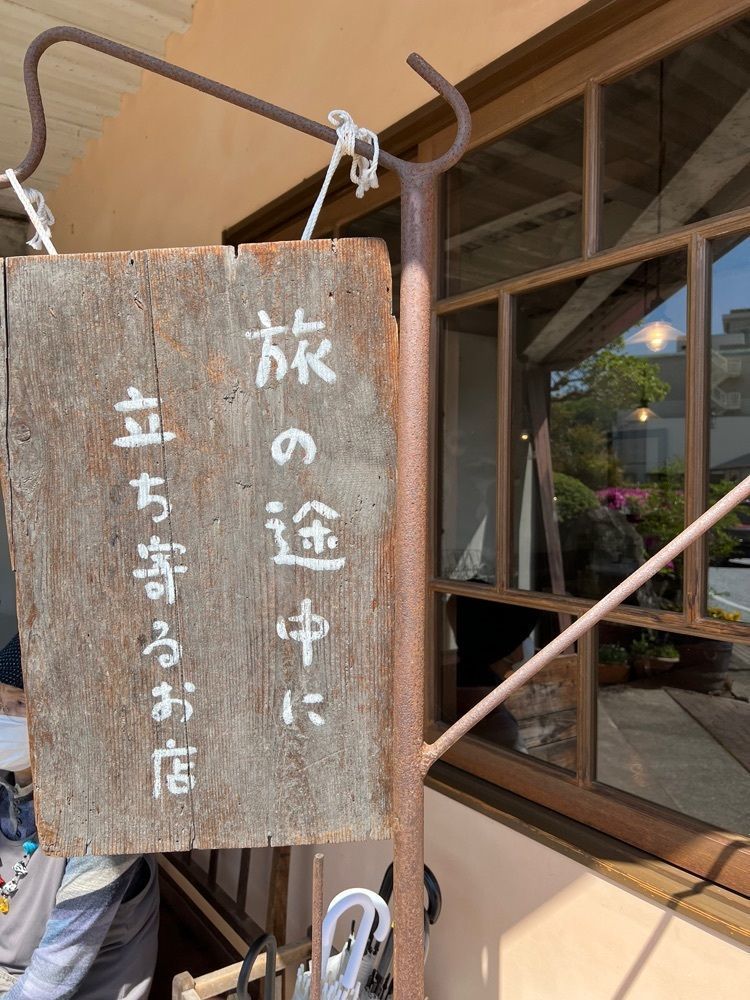 旅の途中に
立ち寄るお店